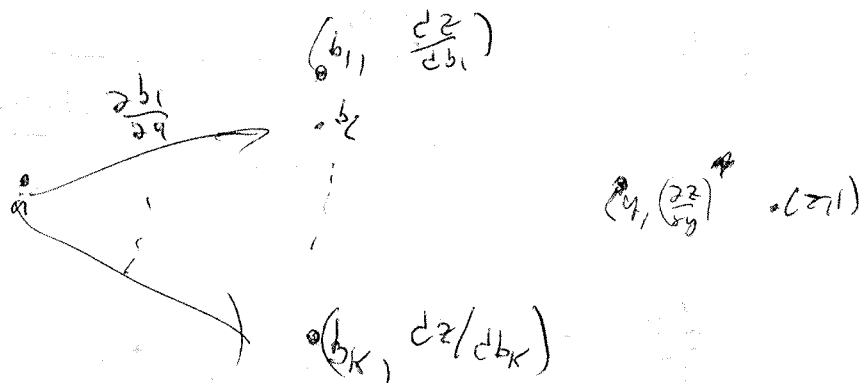 (b₁, dz/db₁)
∂b₁/∂a
· b₂
a
(y, (∂z/∂y)) · (z, 1)
(b_K, dz/db_K)